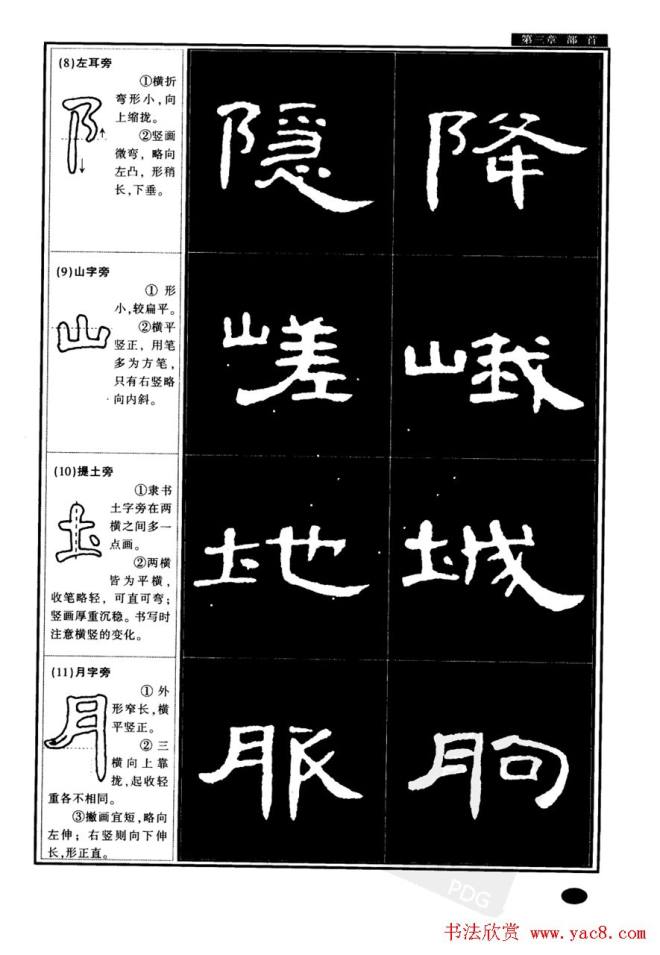 第三章 部 首
(8)左耳旁
①横折
弯形小,向
上缩拢。
②竖画
微弯，略向
左凸，形稍
长,下垂。
隐 降
(9)山字旁
① 形
小,较扁平。
②横平
竖正，用笔
多为方笔，
只有右竖略
向内斜。
嵯 峨
(10)提土旁
①隶书
土字旁在两
横之间多一
点画。
②两横
皆为平横，
收笔略轻，可直可弯；
竖画厚重沉稳。书写时
注意横竖的变化。
地 城
(11)月字旁
① 外
形窄长,横
平竖正。
② 三
横向上靠
拢,起收轻
重各不相同。
③撇画宜短,略向
左伸；右竖则向下伸
长,形正直。
服 朐
PDG
书法欣赏 www.yac8.com